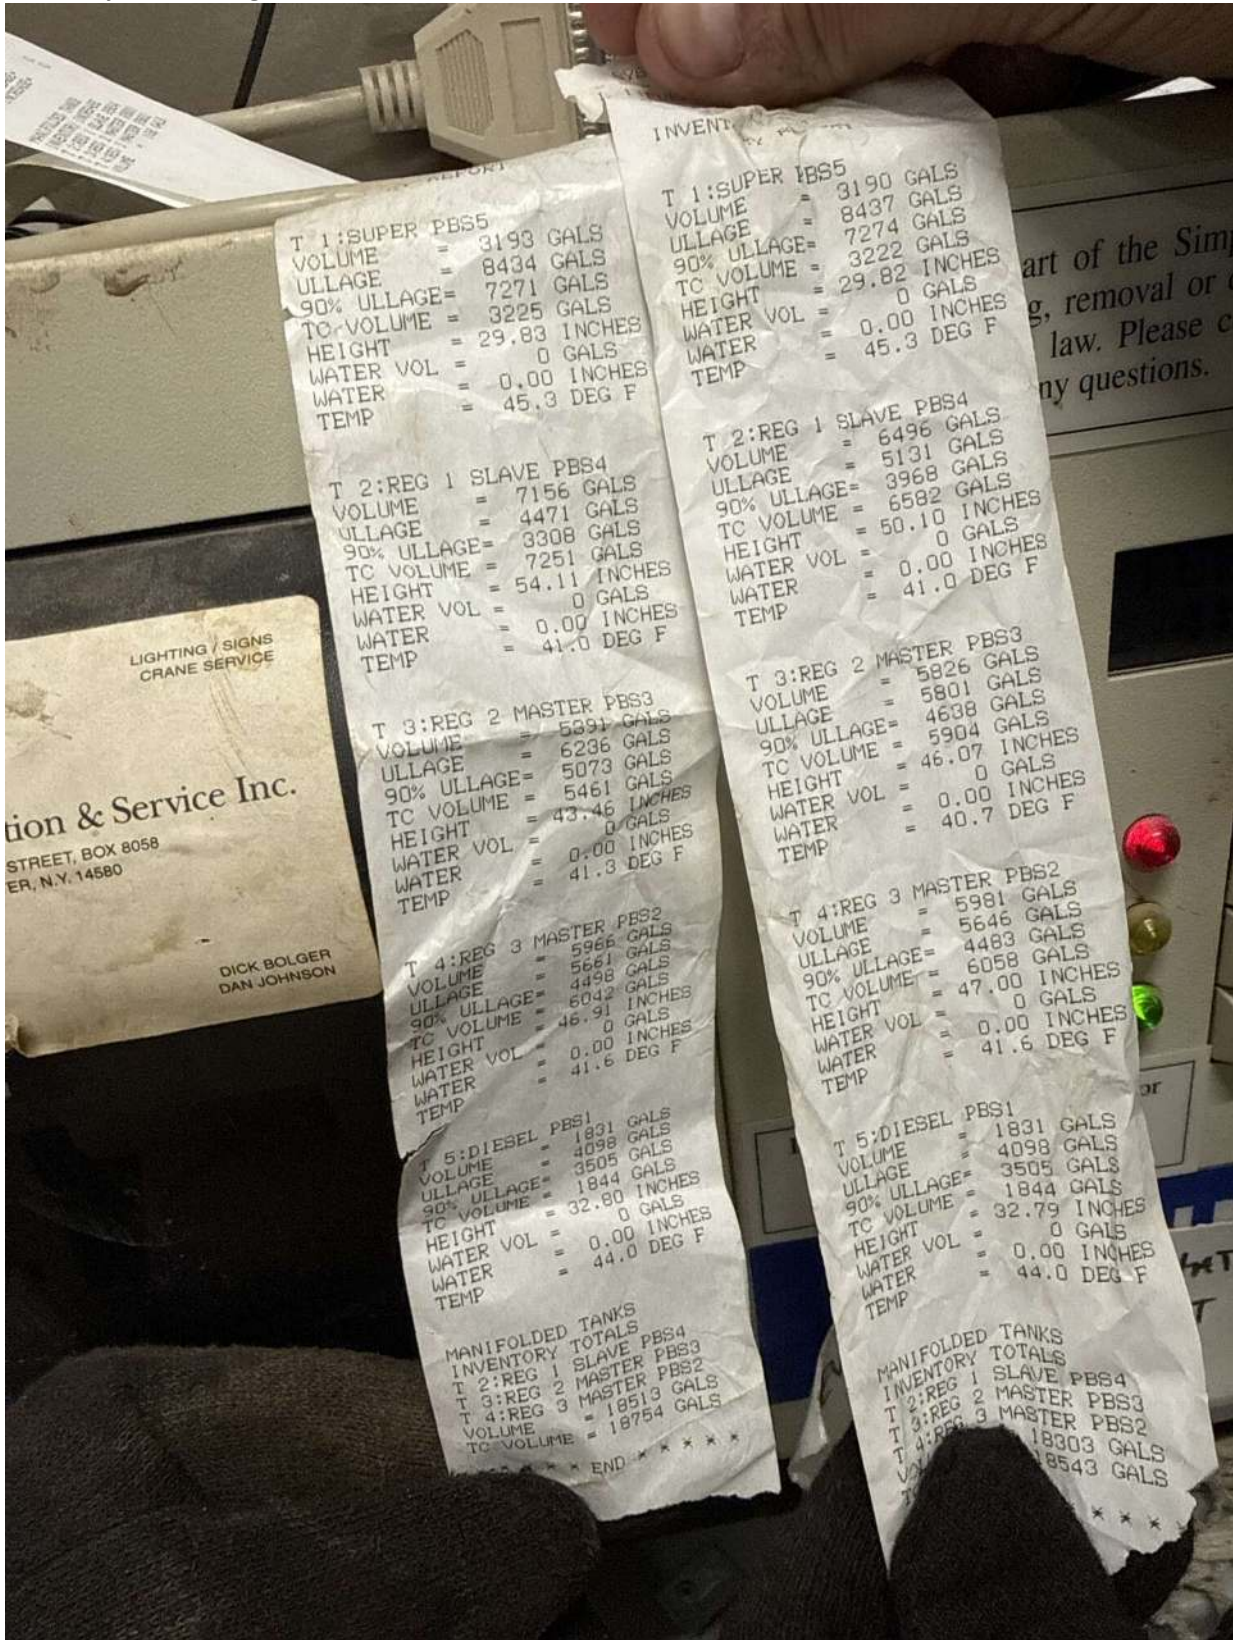 INVENT
T 1:SUPER PBS5
VOLUME = 3193 GALS
ULLAGE = 8434 GALS
90% ULLAGE= 7271 GALS
TC VOLUME = 3225 GALS
HEIGHT = 29.83 INCHES
WATER VOL = 0 GALS
WATER = 0.00 INCHES
TEMP = 45.3 DEG F
T 2:REG 1 SLAVE PBS4
VOLUME = 7156 GALS
ULLAGE = 4471 GALS
90% ULLAGE= 3308 GALS
TC VOLUME = 7251 GALS
HEIGHT = 54.11 INCHES
WATER VOL = 0 GALS
WATER = 0.00 INCHES
TEMP = 41.0 DEG F
T 3:REG 2 MASTER PBS3
VOLUME = 5391 GALS
ULLAGE = 6236 GALS
90% ULLAGE= 5073 GALS
TC VOLUME = 5461 GALS
HEIGHT = 43.46 INCHES
WATER VOL = 0 GALS
WATER = 0.00 INCHES
TEMP = 41.3 DEG F
T 4:REG 3 MASTER PBS2
VOLUME = 5966 GALS
ULLAGE = 5661 GALS
90% ULLAGE= 4498 GALS
TC VOLUME = 6042 GALS
HEIGHT = 46.91 INCHES
WATER VOL = 0 GALS
WATER = 0.00 INCHES
TEMP = 41.6 DEG F
T 5:DIESEL PBS1
VOLUME = 1831 GALS
ULLAGE = 4098 GALS
90% ULLAGE= 3505 GALS
TC VOLUME = 1844 GALS
HEIGHT = 32.80 INCHES
WATER VOL = 0 GALS
WATER = 0.00 INCHES
TEMP = 44.0 DEG F
MANIFOLDED TANKS
INVENTORY TOTALS
T 2:REG 1 SLAVE PBS4
T 3:REG 2 MASTER PBS3
T 4:REG 3 MASTER PBS2
VOLUME = 18513 GALS
TC VOLUME = 18754 GALS
* * END * * * * *
T 1:SUPER PBS5
VOLUME = 3190 GALS
ULLAGE = 8437 GALS
90% ULLAGE= 7274 GALS
TC VOLUME = 3222 GALS
HEIGHT = 29.82 INCHES
WATER VOL = 0 GALS
WATER = 0.00 INCHES
TEMP = 45.3 DEG F
T 2:REG 1 SLAVE PBS4
VOLUME = 6496 GALS
ULLAGE = 5131 GALS
90% ULLAGE= 3968 GALS
TC VOLUME = 6582 GALS
HEIGHT = 50.10 INCHES
WATER VOL = 0 GALS
WATER = 0.00 INCHES
TEMP = 41.0 DEG F
T 3:REG 2 MASTER PBS3
VOLUME = 5826 GALS
ULLAGE = 5801 GALS
90% ULLAGE= 4638 GALS
TC VOLUME = 5904 GALS
HEIGHT = 46.07 INCHES
WATER VOL = 0 GALS
WATER = 0.00 INCHES
TEMP = 40.7 DEG F
T 4:REG 3 MASTER PBS2
VOLUME = 5981 GALS
ULLAGE = 5646 GALS
90% ULLAGE= 4483 GALS
TC VOLUME = 6058 GALS
HEIGHT = 47.00 INCHES
WATER VOL = 0 GALS
WATER = 0.00 INCHES
TEMP = 41.6 DEG F
T 5:DIESEL PBS1
VOLUME = 1831 GALS
ULLAGE = 4098 GALS
90% ULLAGE= 3505 GALS
TC VOLUME = 1844 GALS
HEIGHT = 32.79 INCHES
WATER VOL = 0 GALS
WATER = 0.00 INCHES
TEMP = 44.0 DEG F
MANIFOLDED TANKS
INVENTORY TOTALS
T 2:REG 1 SLAVE PBS4
T 3:REG 2 MASTER PBS3
T 4:REG 3 MASTER PBS2
18303 GALS
8543 GALS
* * *
LIGHTING / SIGNS
CRANE SERVICE
tion & Service Inc.
STREET, BOX 8058
ER, N.Y. 14580
DICK BOLGER
DAN JOHNSON
art of the Simp
g, removal or
law. Please c
ny questions.
or